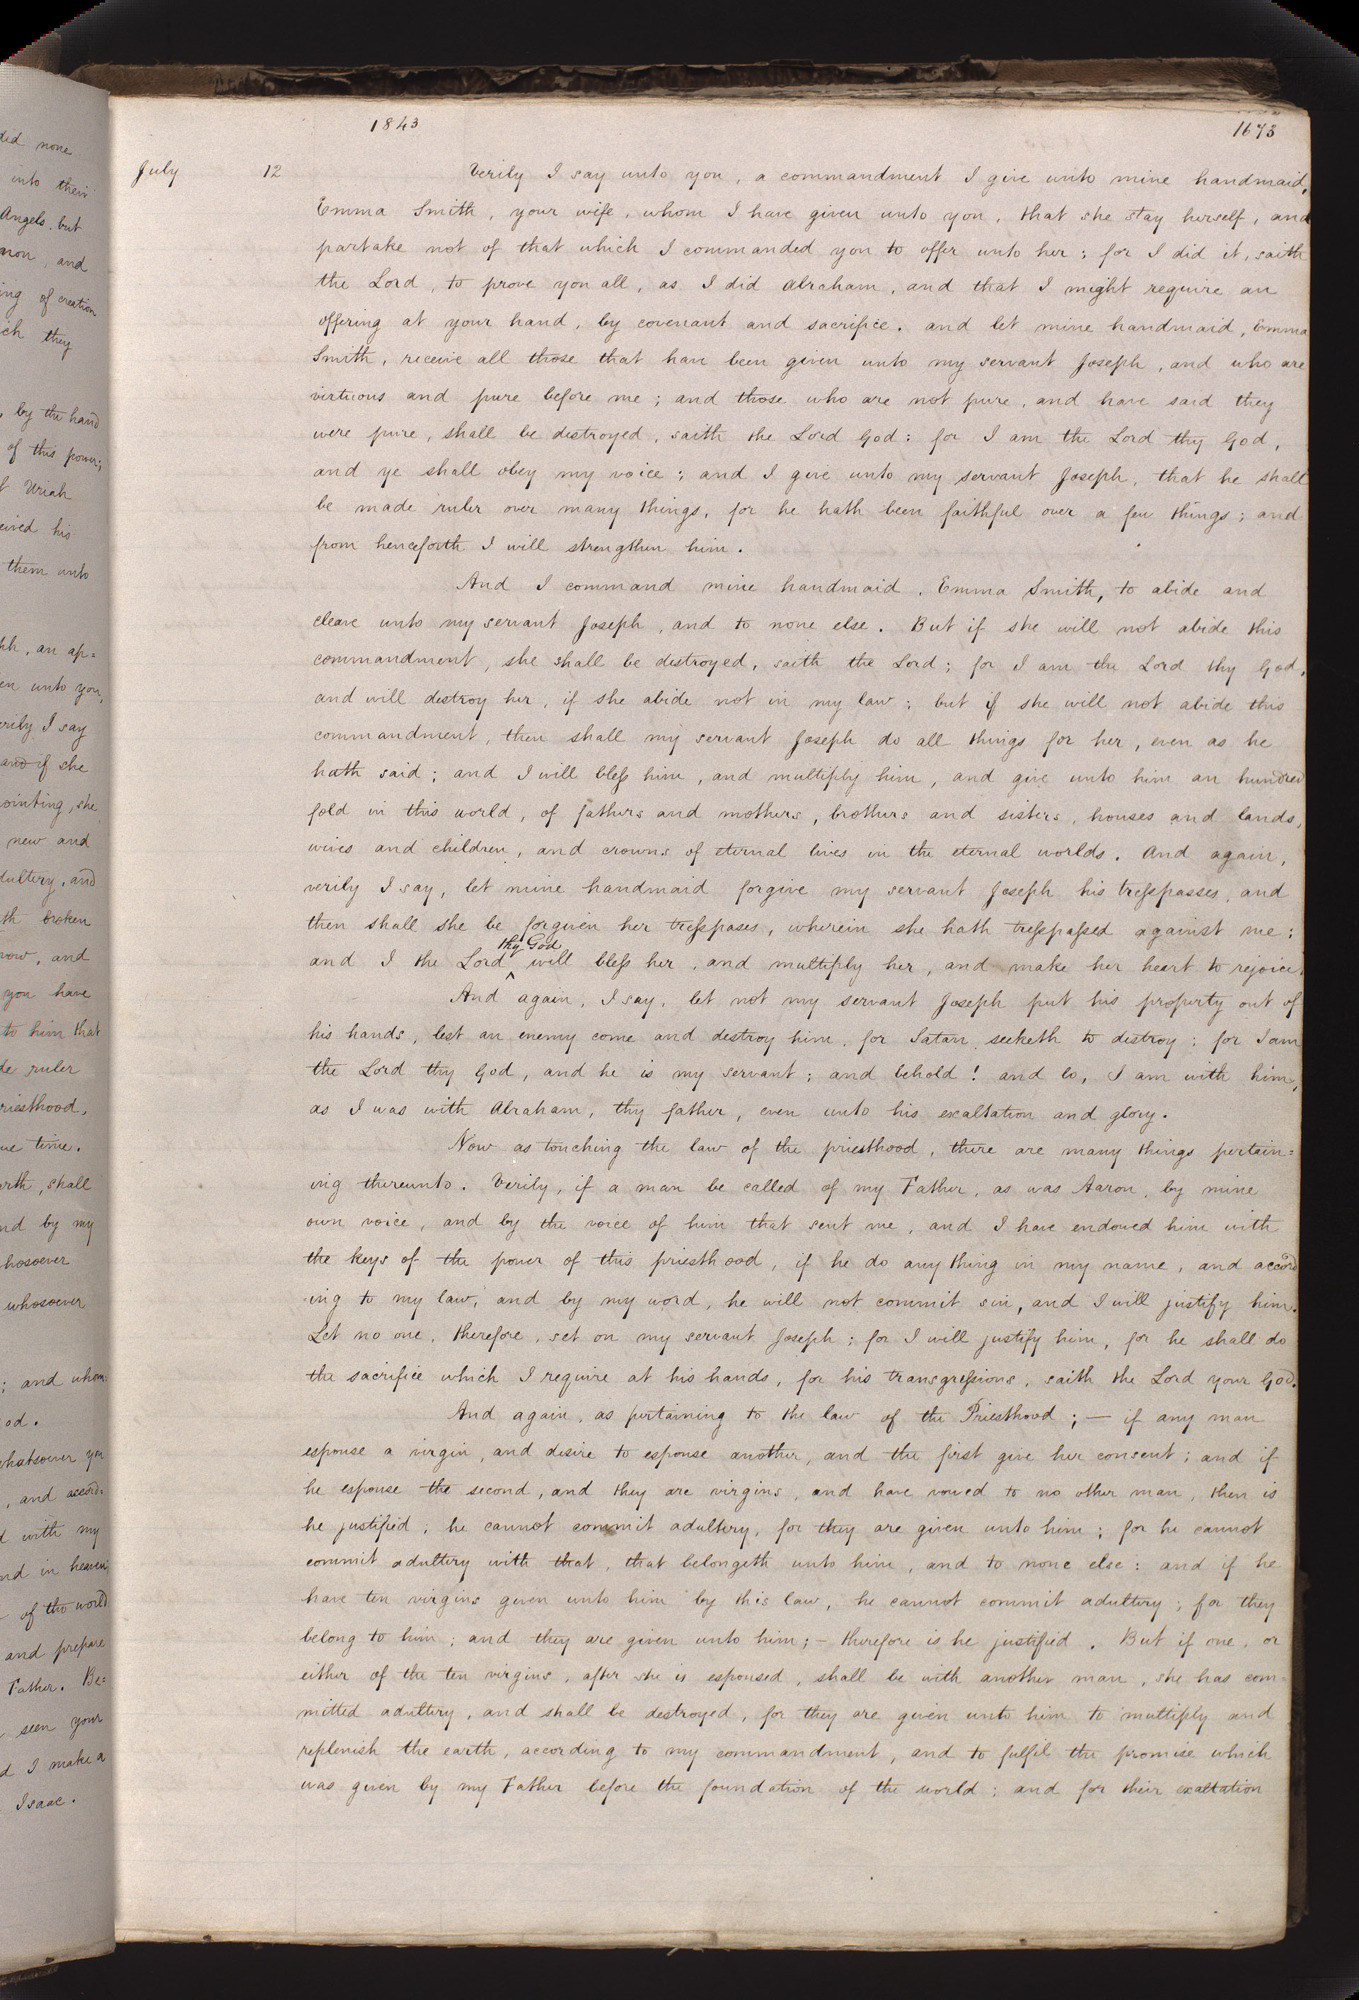 did none
into their
Angels, but
non, and
ing of creation
ich they
, by the hand
of this power;
f Uriah
eived his
them unto
ph, an ap=
en unto you,
erily I say
and if she
ointing, she
new and
dultery, and
th broken
vow, and
you have
to him that
de ruler
riesthood,
ue time.
arth, shall
nd by my
hosoever
whosoever
; and whom
od.
hatsoever you
, and accord=
d with my
nd in heaven
of the world
and prepare
Father. Be=
seen your
d I make a
Isaac.
1843 1673
July 12 Verily I say unto you, a commandment I give unto mine handmaid,
Emma Smith, your wife, whom I have given unto you, that she stay herself, and
partake not of that which I commanded you to offer unto her; for I did it, saith
the Lord, to prove you all, as I did Abraham, and that I might require an
offering at your hand, by covenant and sacrifice. and let mine handmaid, Emma
Smith, receive all those that have been given unto my servant Joseph, and who are
virtuous and pure before me; and those who are not pure, and have said they
were pure, shall be destroyed, saith the Lord God: for I am the Lord thy God,
and ye shall obey my voice; and I give unto my servant Joseph, that he shall
be made ruler over many things, for he hath been faithful over a few things; and
from henceforth I will strengthen him.
And I command mine handmaid, Emma Smith, to abide and
cleave unto my servant Joseph, and to none else. But if she will not abide this
commandment, she shall be destroyed, saith the Lord; for I am the Lord thy God,
and will destroy her, if she abide not in my law; but if she will not abide this
commandment, then shall my servant Joseph do all things for her, even as he
hath said; and I will bless him, and multiply him, and give unto him an hundred
fold in this world, of fathers and mothers, brothers and sisters, houses and lands,
wives and children, and crowns of eternal lives in the eternal worlds. And again,
verily I say, let mine handmaid forgive my servant Joseph his tresspasses, and
then shall she be forgiven her tresspases, wherein she hath tresspassed against me;
thy God
and I the Lord ^ will bless her, and multiply her, and make her heart to rejoice.
And again, I say, let not my servant Joseph put his property out of
his hands, lest an enemy come and destroy him, for Satan seeketh to destroy; for I am
the Lord thy God, and he is my servant; and behold! and lo, I am with him,
as I was with Abraham, thy father, even unto his exaltation and glory.
Now as touching the law of the priesthood, there are many things pertain=
ing thereunto. Verily, if a man be called of my Father, as was Aaron, by mine
own voice, and by the voice of him that sent me, and I have endowed him with
the keys of the power of this priesthood, if he do any thing in my name, and accord
=ing to my law, and by my word, he will not commit sin, and I will justify him.
Let no one, therefore, set on my servant Joseph; for I will justify him, for he shall do
the sacrifice which I require at his hands, for his transgressions, saith the Lord your God.
And again, as pertaining to the law of the Priesthood; — if any man
espouse a virgin, and desire to espouse another, and the first give her consent; and if
he espouse the second, and they are virgins, and have vowed to no other man, then is
he justified; he cannot commit adultery, for they are given unto him; for he cannot
commit adultery with that, that belongeth unto him, and to none else: and if he
have ten virgins given unto him by this law, he cannot commit adultery; for they
belong to him; and they are given unto him; — therefore is he justified. But if one, or
either of the ten virgins, after she is espoused, shall be with another man, she has com=
mitted adultery, and shall be destroyed, for they are given unto him to multiply and
replenish the earth, according to my commandment, and to fulfil the promise which
was given by my Father before the foundation of the world; and for their exaltation